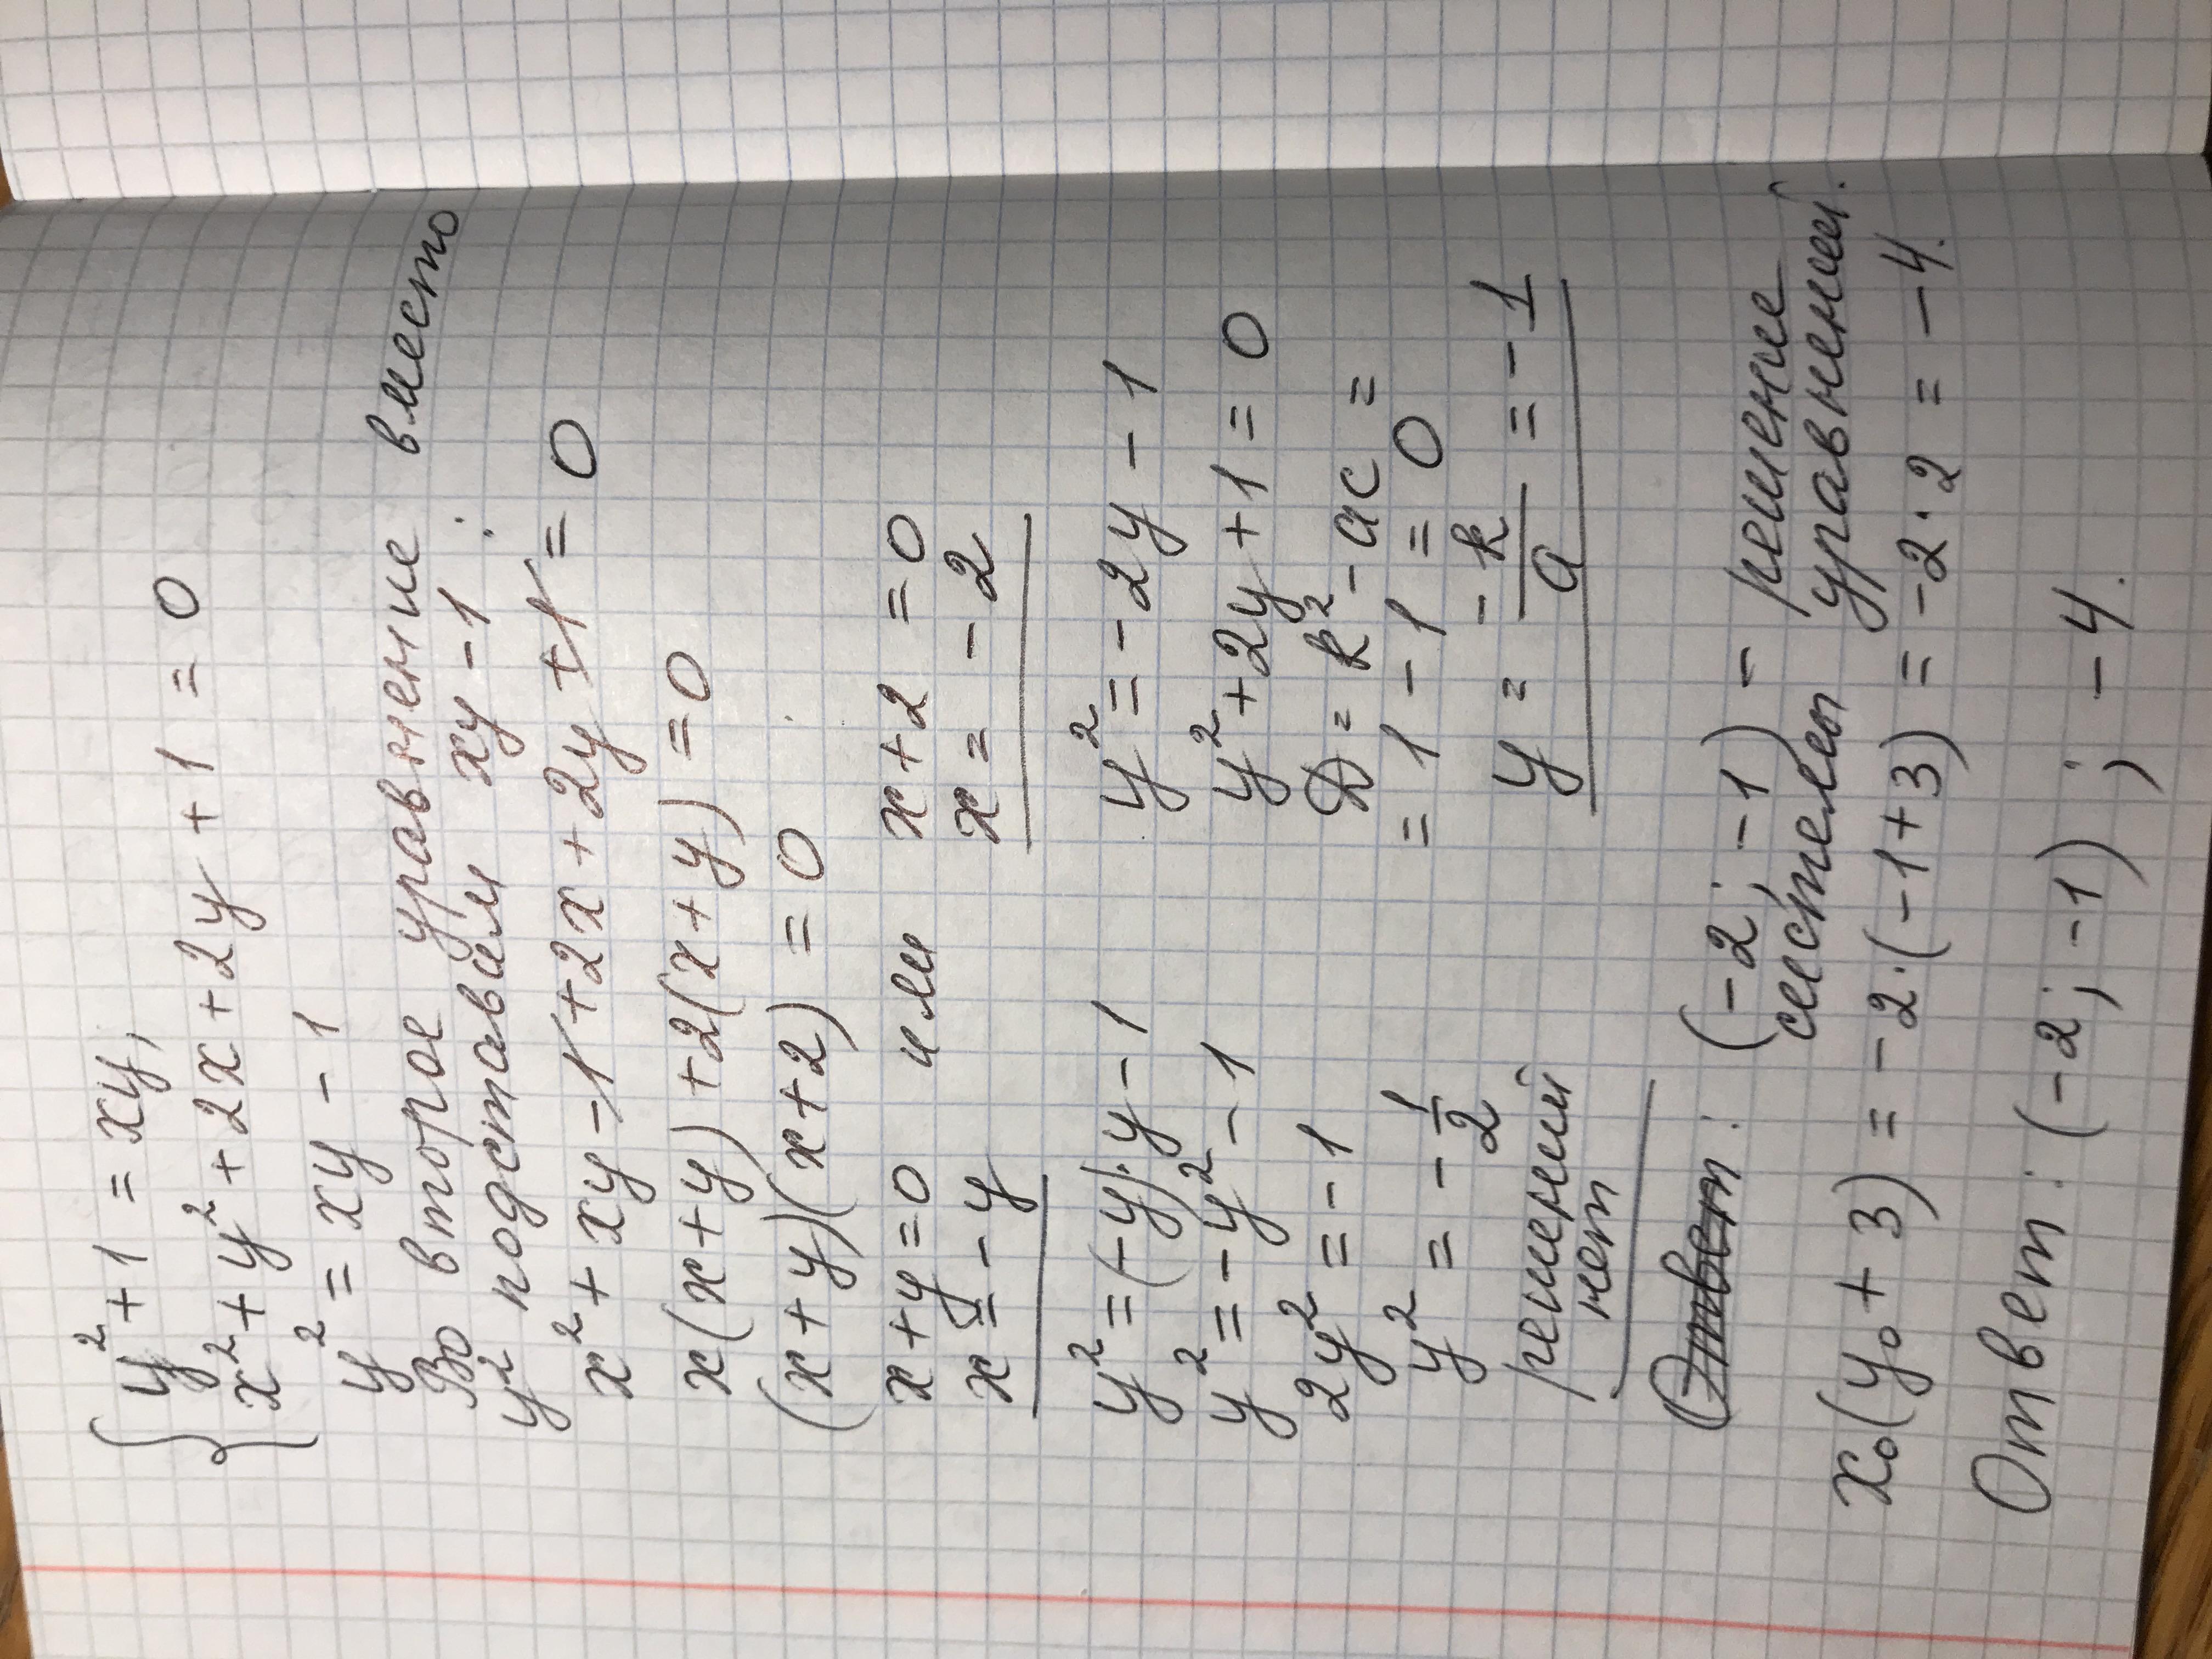 y² + 1 = xy,
x² + y² + 2x + 2y + 1 = 0
y² = xy - 1
Во второе уравнение вместо
y² подставим xy - 1:
x² + xy - 1 + 2x + 2y + 1 = 0
x(x+y) + 2(x+y) = 0
(x+y)(x+2) = 0
x+y=0 или x+2=0
x = -y x = -2
y² = (-y)·y - 1 y² = -2y - 1
y² = -y² - 1 y² + 2y + 1 = 0
2y² = -1 D = k² - ac =
= 1 - 1 = 0
y² = -1/2 y = -k/a = -1
решений
нет
Ответ: (-2; -1) - решение
системы уравнений.
x₀(y₀ + 3) = -2·(-1+3) = -2·2 = -4.
Ответ: (-2; -1); -4.